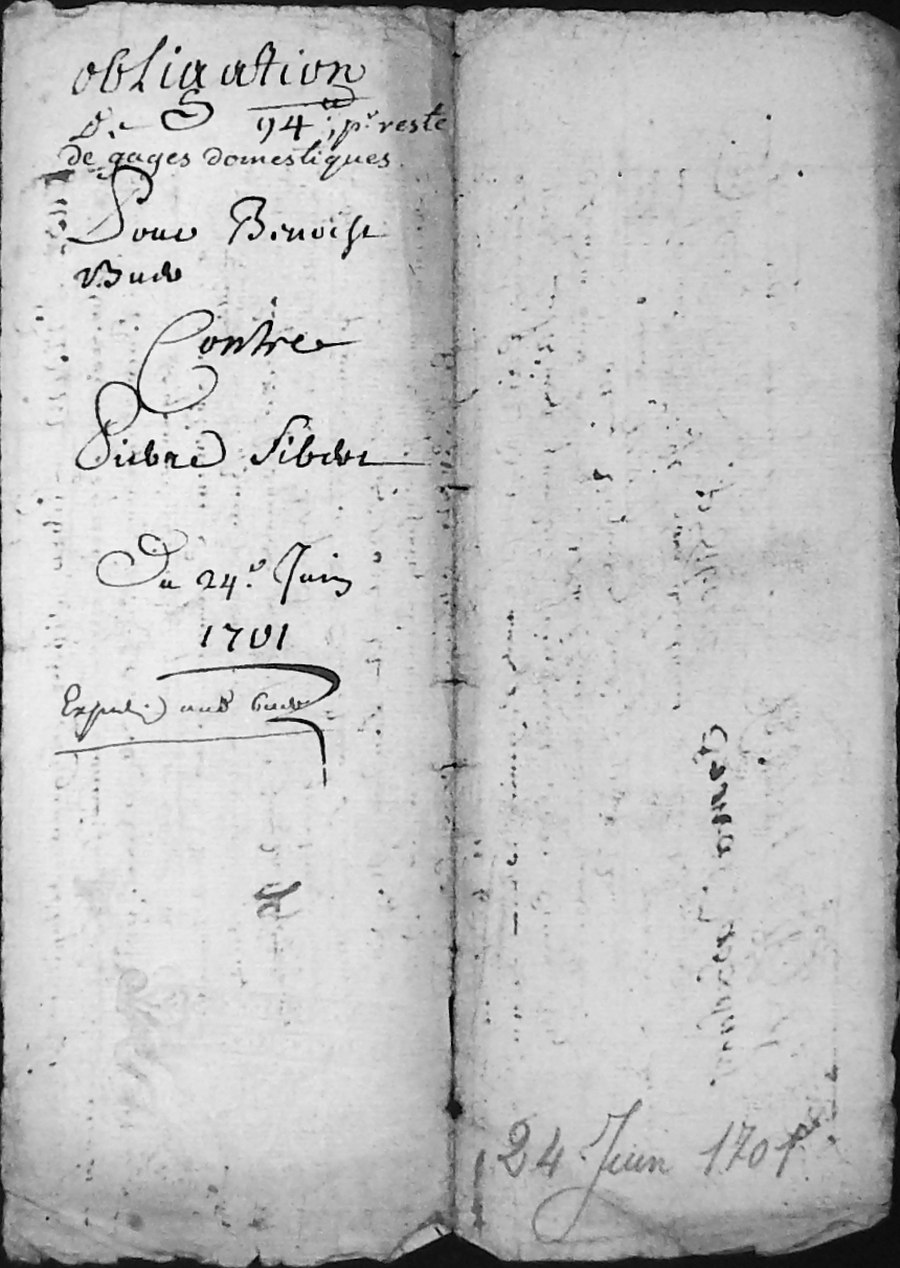 obligation
De 94 ᵗᵗ, pʳ reste
de gages domestiques
Pour Benoist
Bude
Contre
Pierre Sibert
Du 24ᵉ Juin
1701
Expedié aud Bude
24 Juin 1701